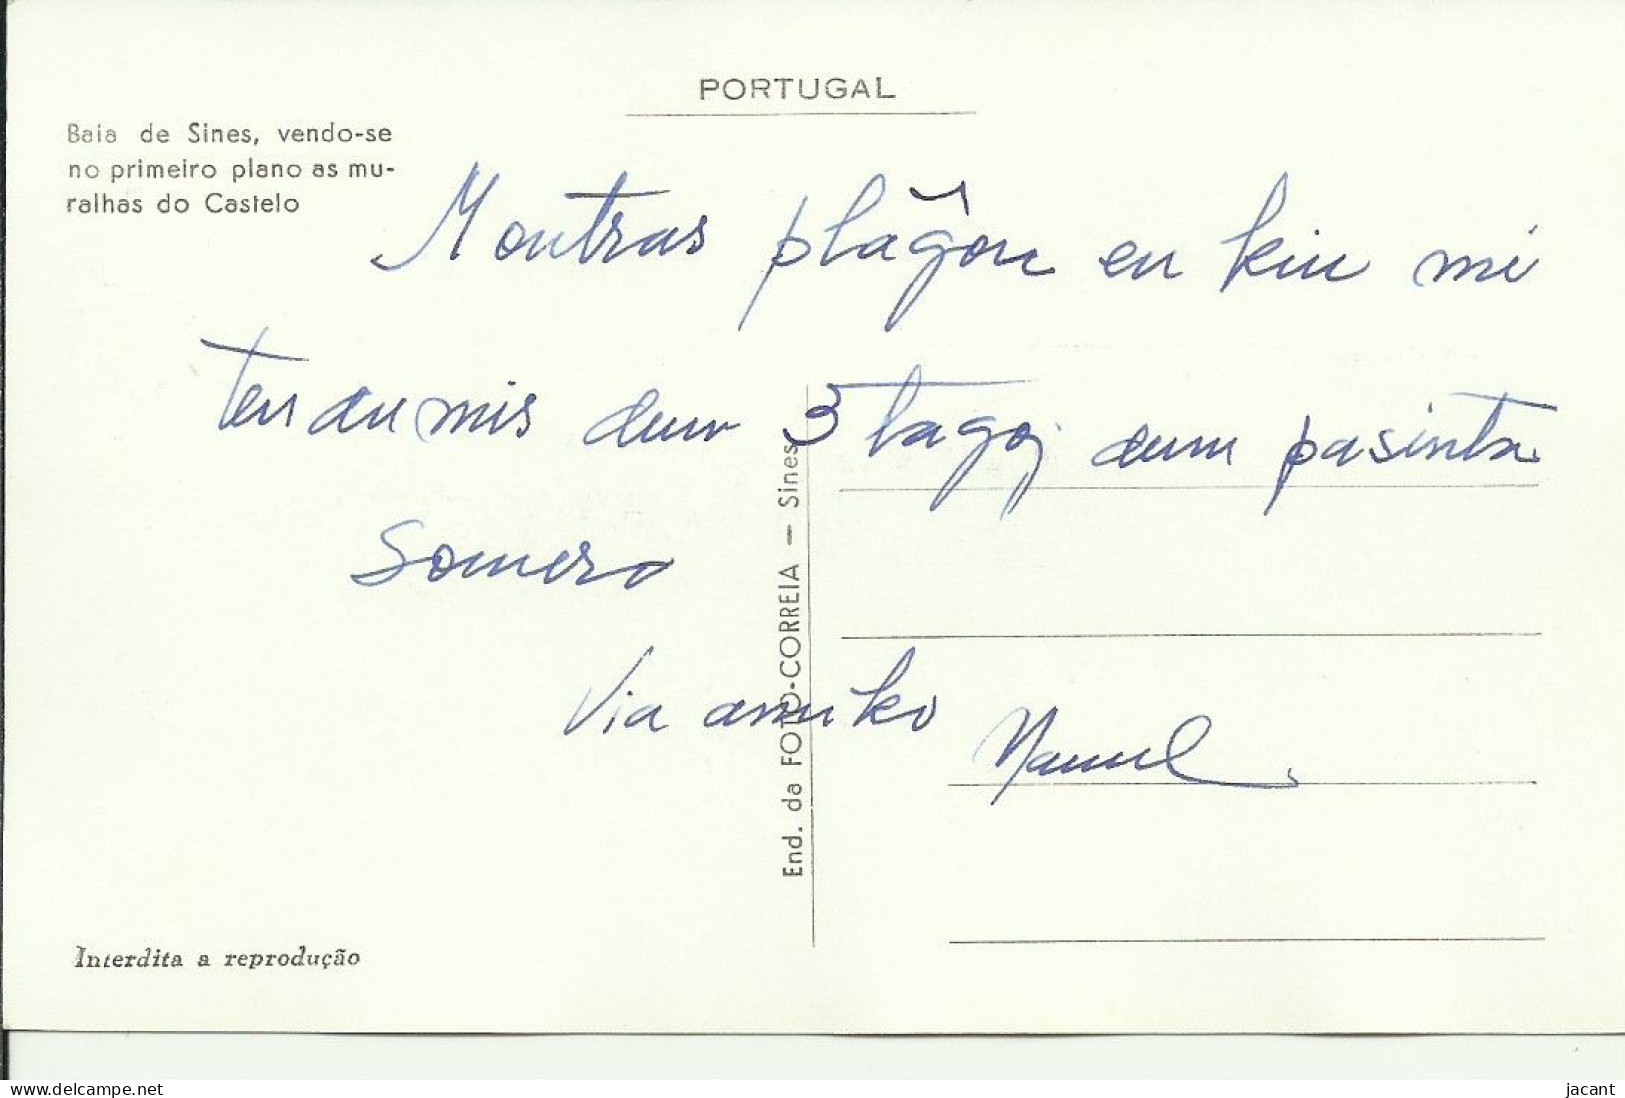 PORTUGAL
Baia de Sines, vendo-se
no primeiro plano as mu-
ralhas do Castelo
Montras plâĝon en kiu mi
tendumis dum 3 tagoj dum pasinta
somero
Via amiko Manuel
End. da FOTO-CORREIA — Sines
Interdita a reprodução
delcampe.net
jacant